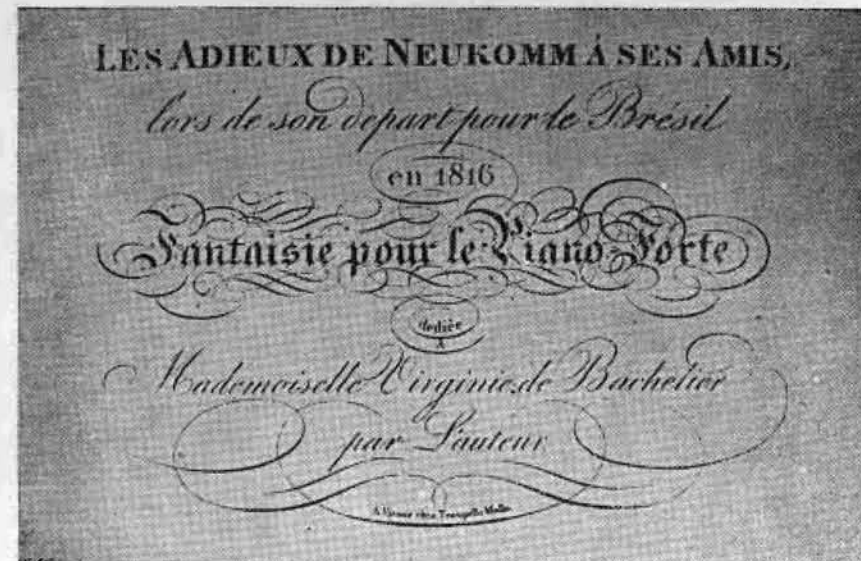 LES ADIEUX DE NEUKOMM Á SES AMIS,
lors de son départ pour le Brésil
en 1816
Fantaisie pour le Piano-Forte
dediée
A
Mademoiselle Virginie de Bachelier
par L'auteur
A Vienne chez Tranquillo Mollo